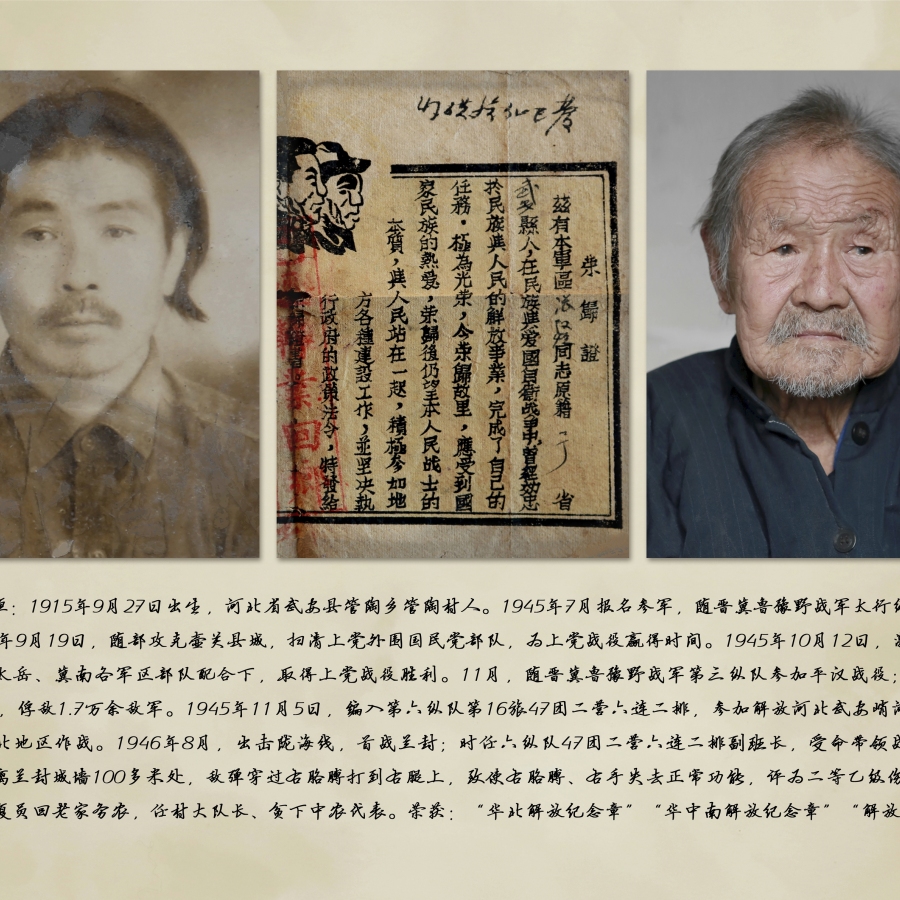 荣歸證
兹有本軍區同志原籍省
武安縣人，在民族與愛國自衛战爭中，曾經效忠
於民族與人民的解放事業，完成了自己的
任務，極為光荣，今荣歸故里，應受到國
家民族的熱愛，荣歸後仍望本人民战士的
本質，與人民站在一起，積極参加地
方各種建設工作，並坚决執
行政府的政策法令，特發給
：1915年9月27日出生，河北省武安县管陶乡管陶村人。1945年7月报名参军，随晋冀鲁豫野战军太行
年9月19日，随部攻克壶关县城，扫清上党外围国民党部队，为上党战役赢得时间。1945年10月12日，
太岳、冀南各军区部队配合下，取得上党战役胜利。11月，随晋冀鲁豫野战军第三纵队参加平汉战役；
，俘敌1.7万余敌军。1945年11月5日，编入第六纵队第16旅47团二营六连二排，参加解放河北武安峭河
北地区作战。1946年8月，出击陇海线，首战兰封；时任六纵队47团二营六连二排副班长，受命带领战
离兰封城墙100多米处，敌弹穿过右胳膊打到右腿上，致使右胳膊、右手失去正常功能，评为二等乙级伤
复员回老家务农，任村大队长、贫下中农代表。荣获：“华北解放纪念章”“华中南解放纪念章”“解放